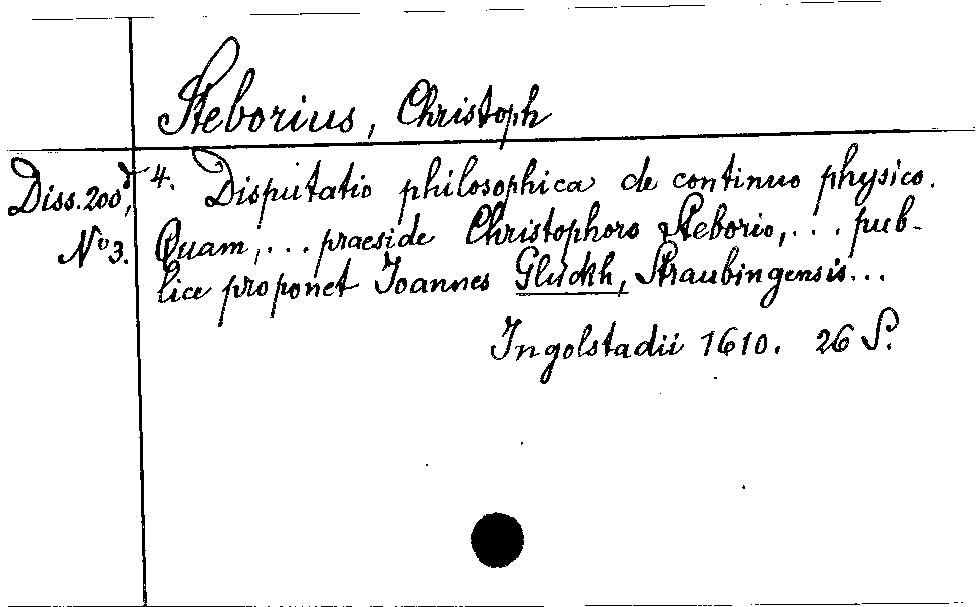 Steborius, Christoph
Diss. 200d, 4. Disputatio philosophica de continuo physico.
No 3. Quam, ... praeside Christophoro Steborio, ... pub-
lice proponet Joannes Gluckh, Straubingensis ...
Ingolstadii 1610. 26 S.